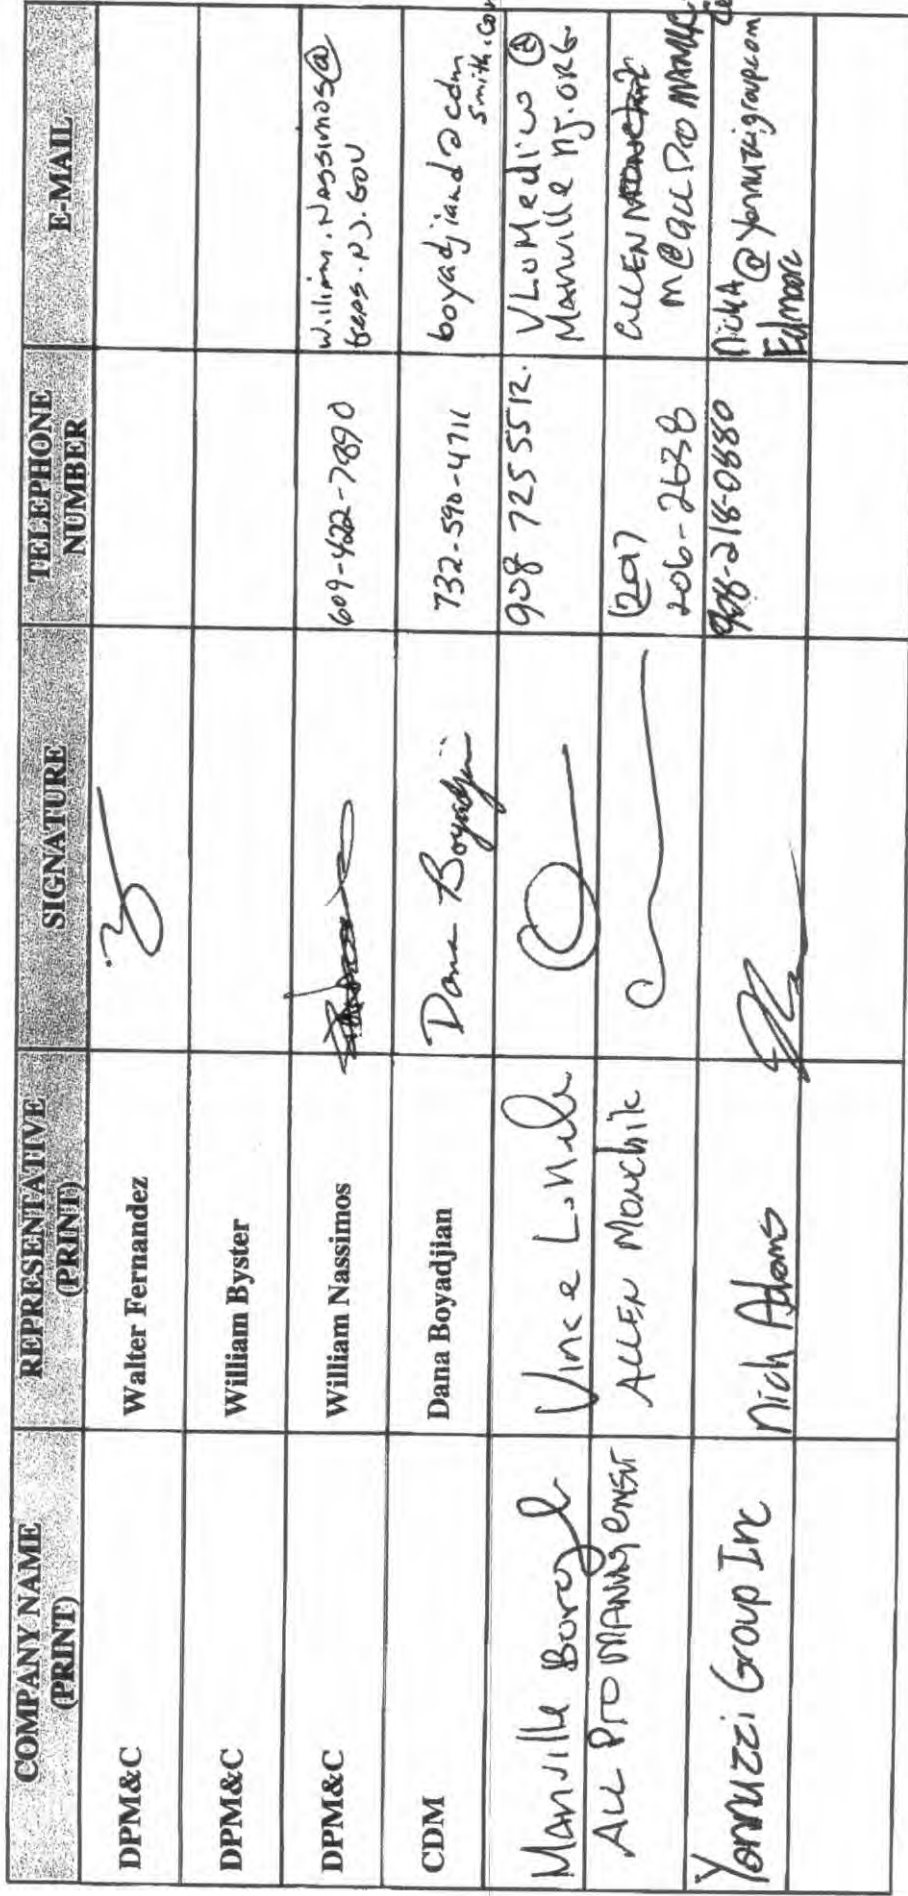 COMPANY NAME (PRINT) REPRESENTATIVE (PRINT) SIGNATURE TELEPHONE NUMBER E-MAIL
DPM&C Walter Fernandez
DPM&C William Byster
DPM&C William Nassimos 609-422-7890 William.Nassimos@
.NJ.GOV
CDM Dana Boyadjian Dana Boyadjian 732-590-4711 boyadjiand@cdm
smith.com
Manville Boro Vince 908 725 5512. VLoMedico @
Manville NJ.ORG
ALL Pro MANAgemeNT ALLEN Monchik (201)
206-2638 ALLEN
M@ALLPRO
Yannuzzi Group Inc Nick Adams 908-218-0880 NickA@yannuzzigroup.com